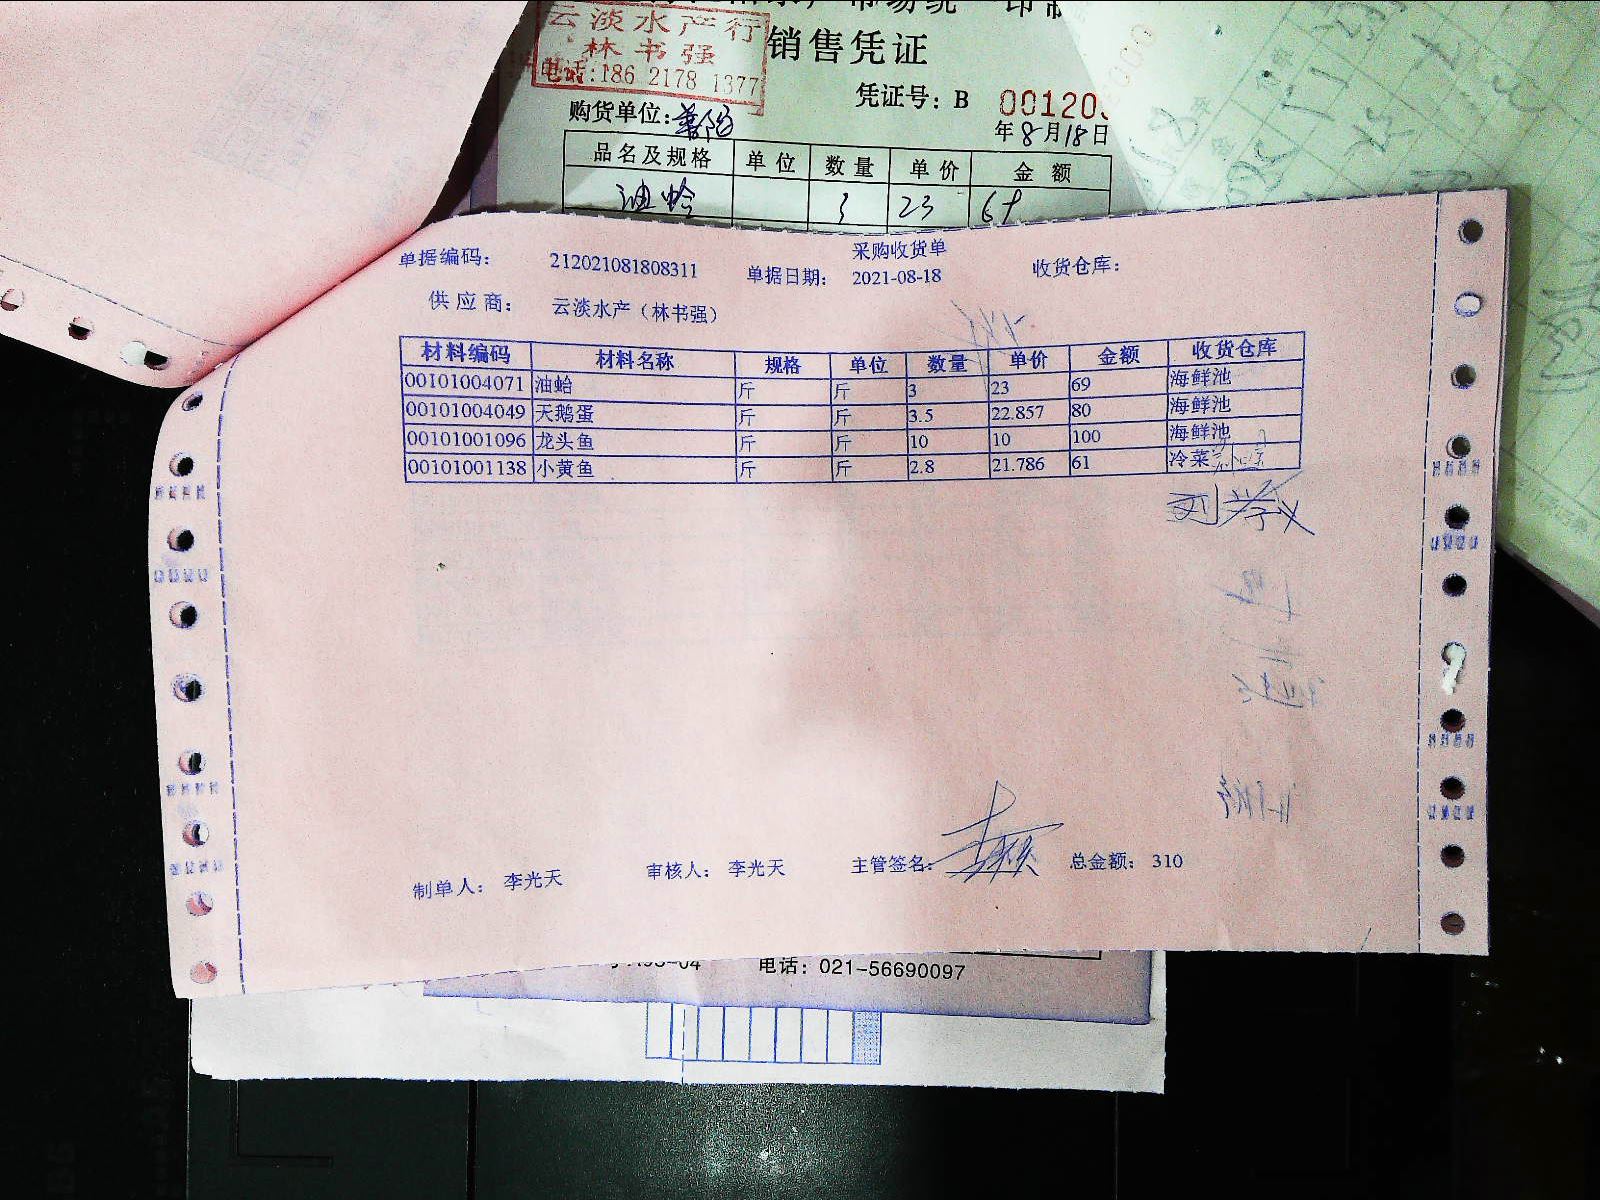 云淡水产行
林书强
电话:186 2178 1377
销售凭证
凭证号: B 00120
购货单位:
年8月18日
品名及规格 单位 数量 单价 金额
油蛤 3 23 69
采购收货单
单据编码: 212021081808311 单据日期: 2021-08-18 收货仓库:
供应商: 云淡水产（林书强）
材料编码 材料名称 规格 单位 数量 单价 金额 收货仓库
00101004071 油蛤 斤 斤 3 23 69 海鲜池
00101004049 天鹅蛋 斤 斤 3.5 22.857 80 海鲜池
00101001096 龙头鱼 斤 斤 10 10 100 海鲜池
00101001138 小黄鱼 斤 斤 2.8 21.786 61 冷菜
制单人: 李光天 审核人: 李光天 主管签名: 总金额: 310
电话: 021-56690097